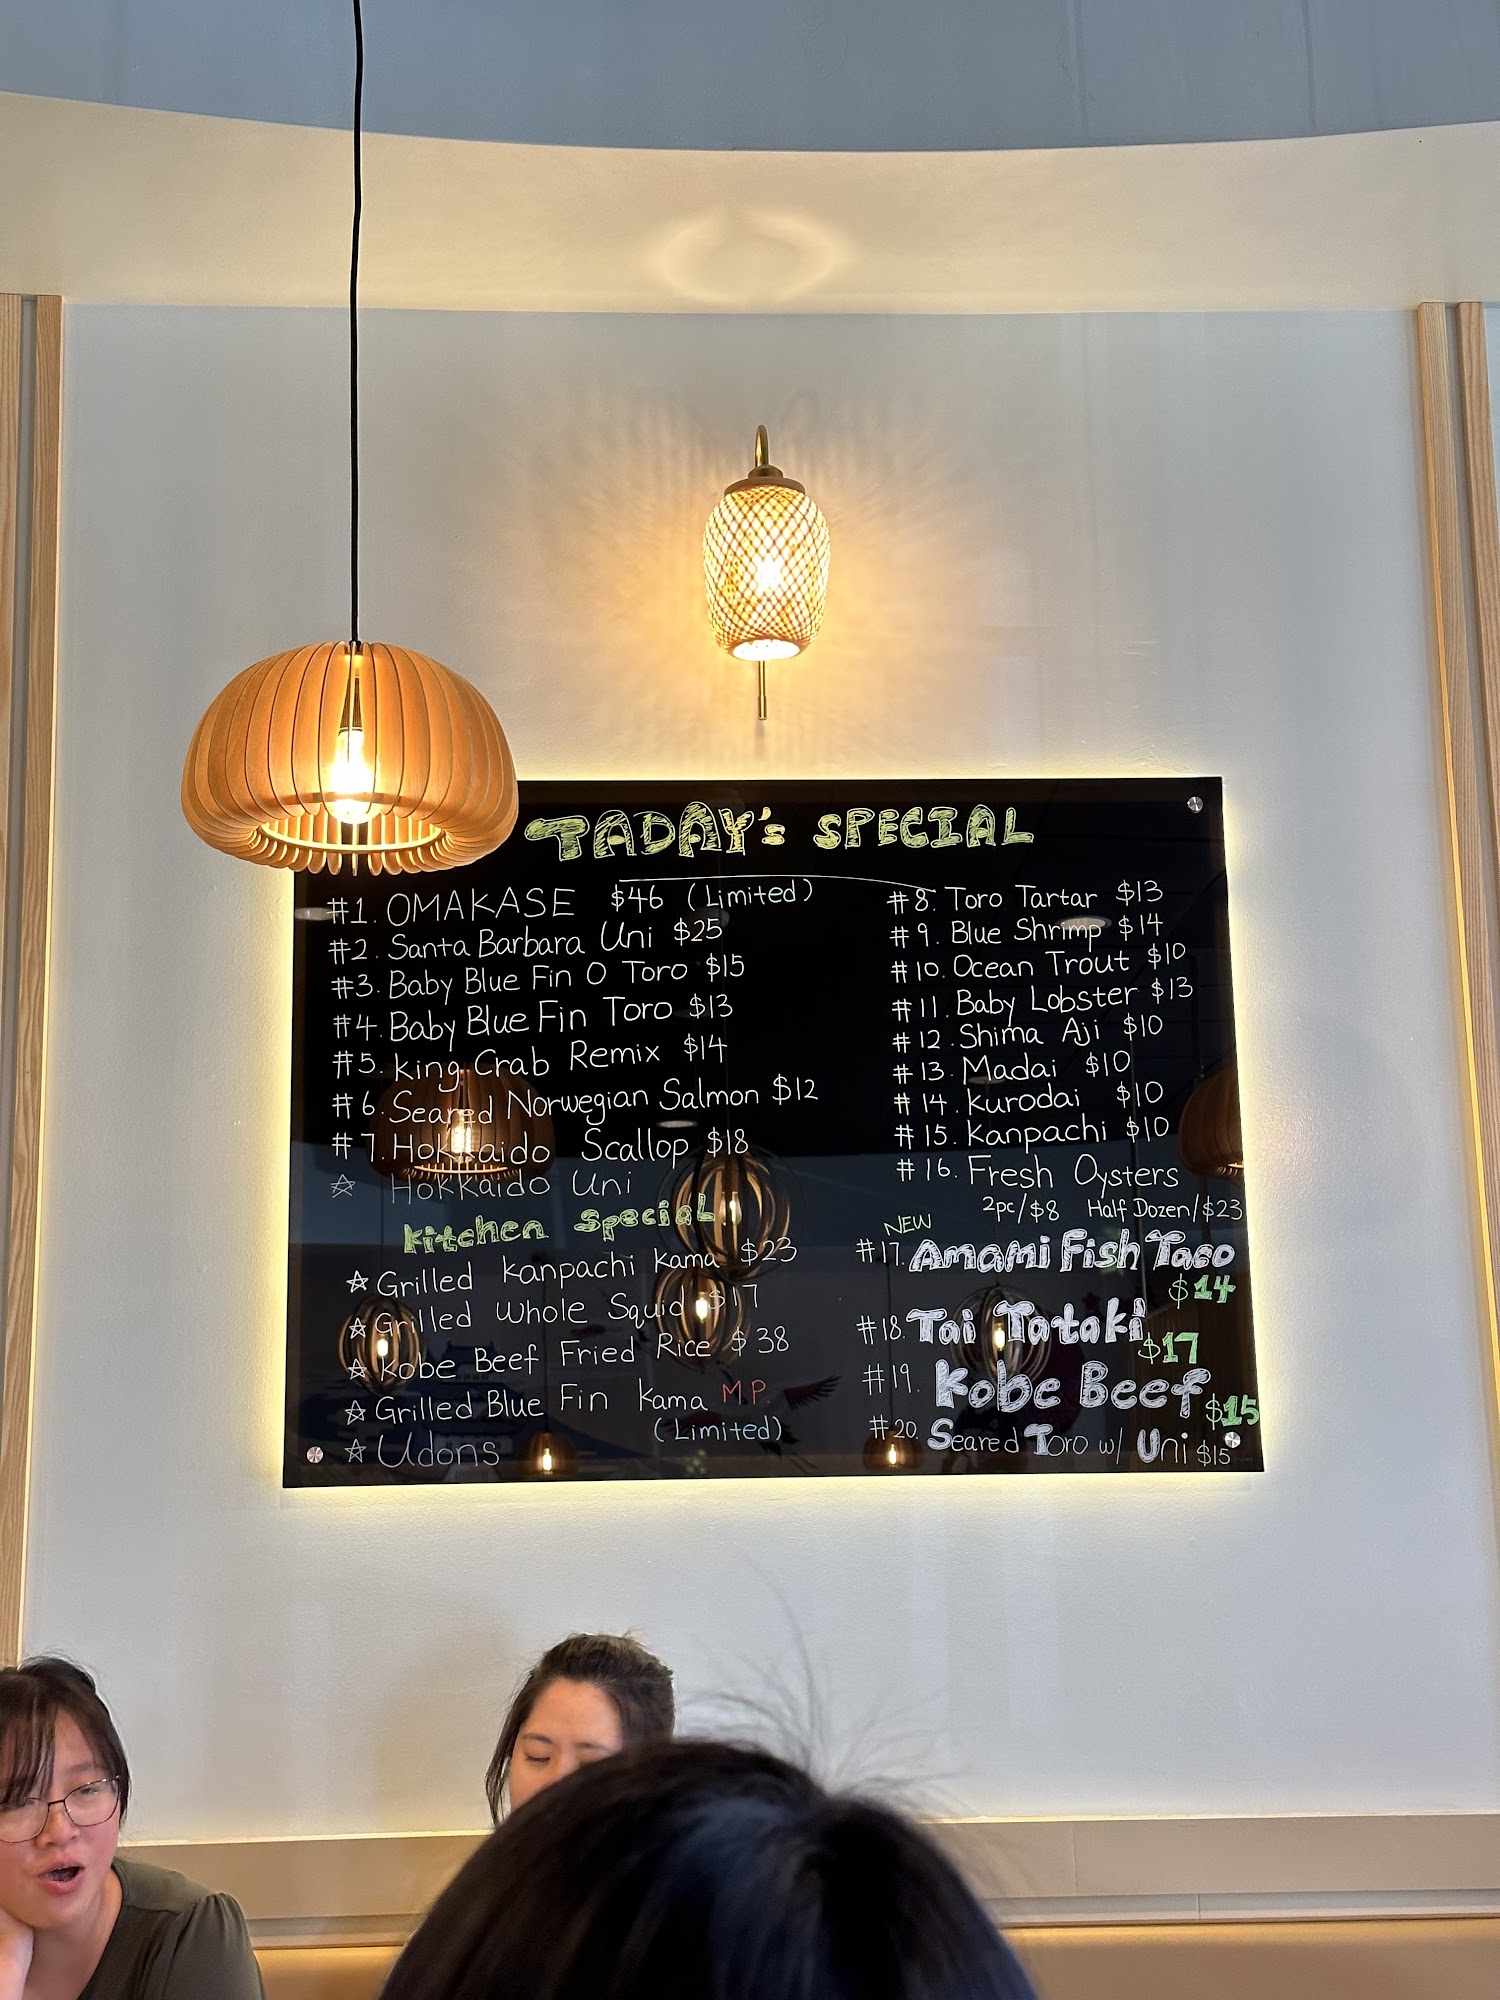 TADAY's SPECIAL
#1. OMAKASE $46 (Limited)
#2. Santa Barbara Uni $25
#3. Baby Blue Fin O Toro $15
#4. Baby Blue Fin Toro $13
#5. King Crab Remix $14
#6. Seared Norwegian Salmon $12
#7. Hokkaido Scallop $18
☆ Hokkaido Uni
Kitchen Special
☆ Grilled Kanpachi Kama $23
☆ Grilled Whole Squid $17
☆ Kobe Beef Fried Rice $38
☆ Grilled Blue Fin Kama M.P.
(Limited)
☆ Udons
#8. Toro Tartar $13
#9. Blue Shrimp $14
#10. Ocean Trout $10
#11. Baby Lobster $13
#12. Shima Aji $10
#13. Madai $10
#14. Kurodai $10
#15. Kanpachi $10
#16. Fresh Oysters
2pc/$8 Half Dozen/$23
NEW
#17. Amami Fish Taco
$14
#18. Tai Tataki $17
#19. Kobe Beef $15
#20. Seared Toro w/ Uni $15